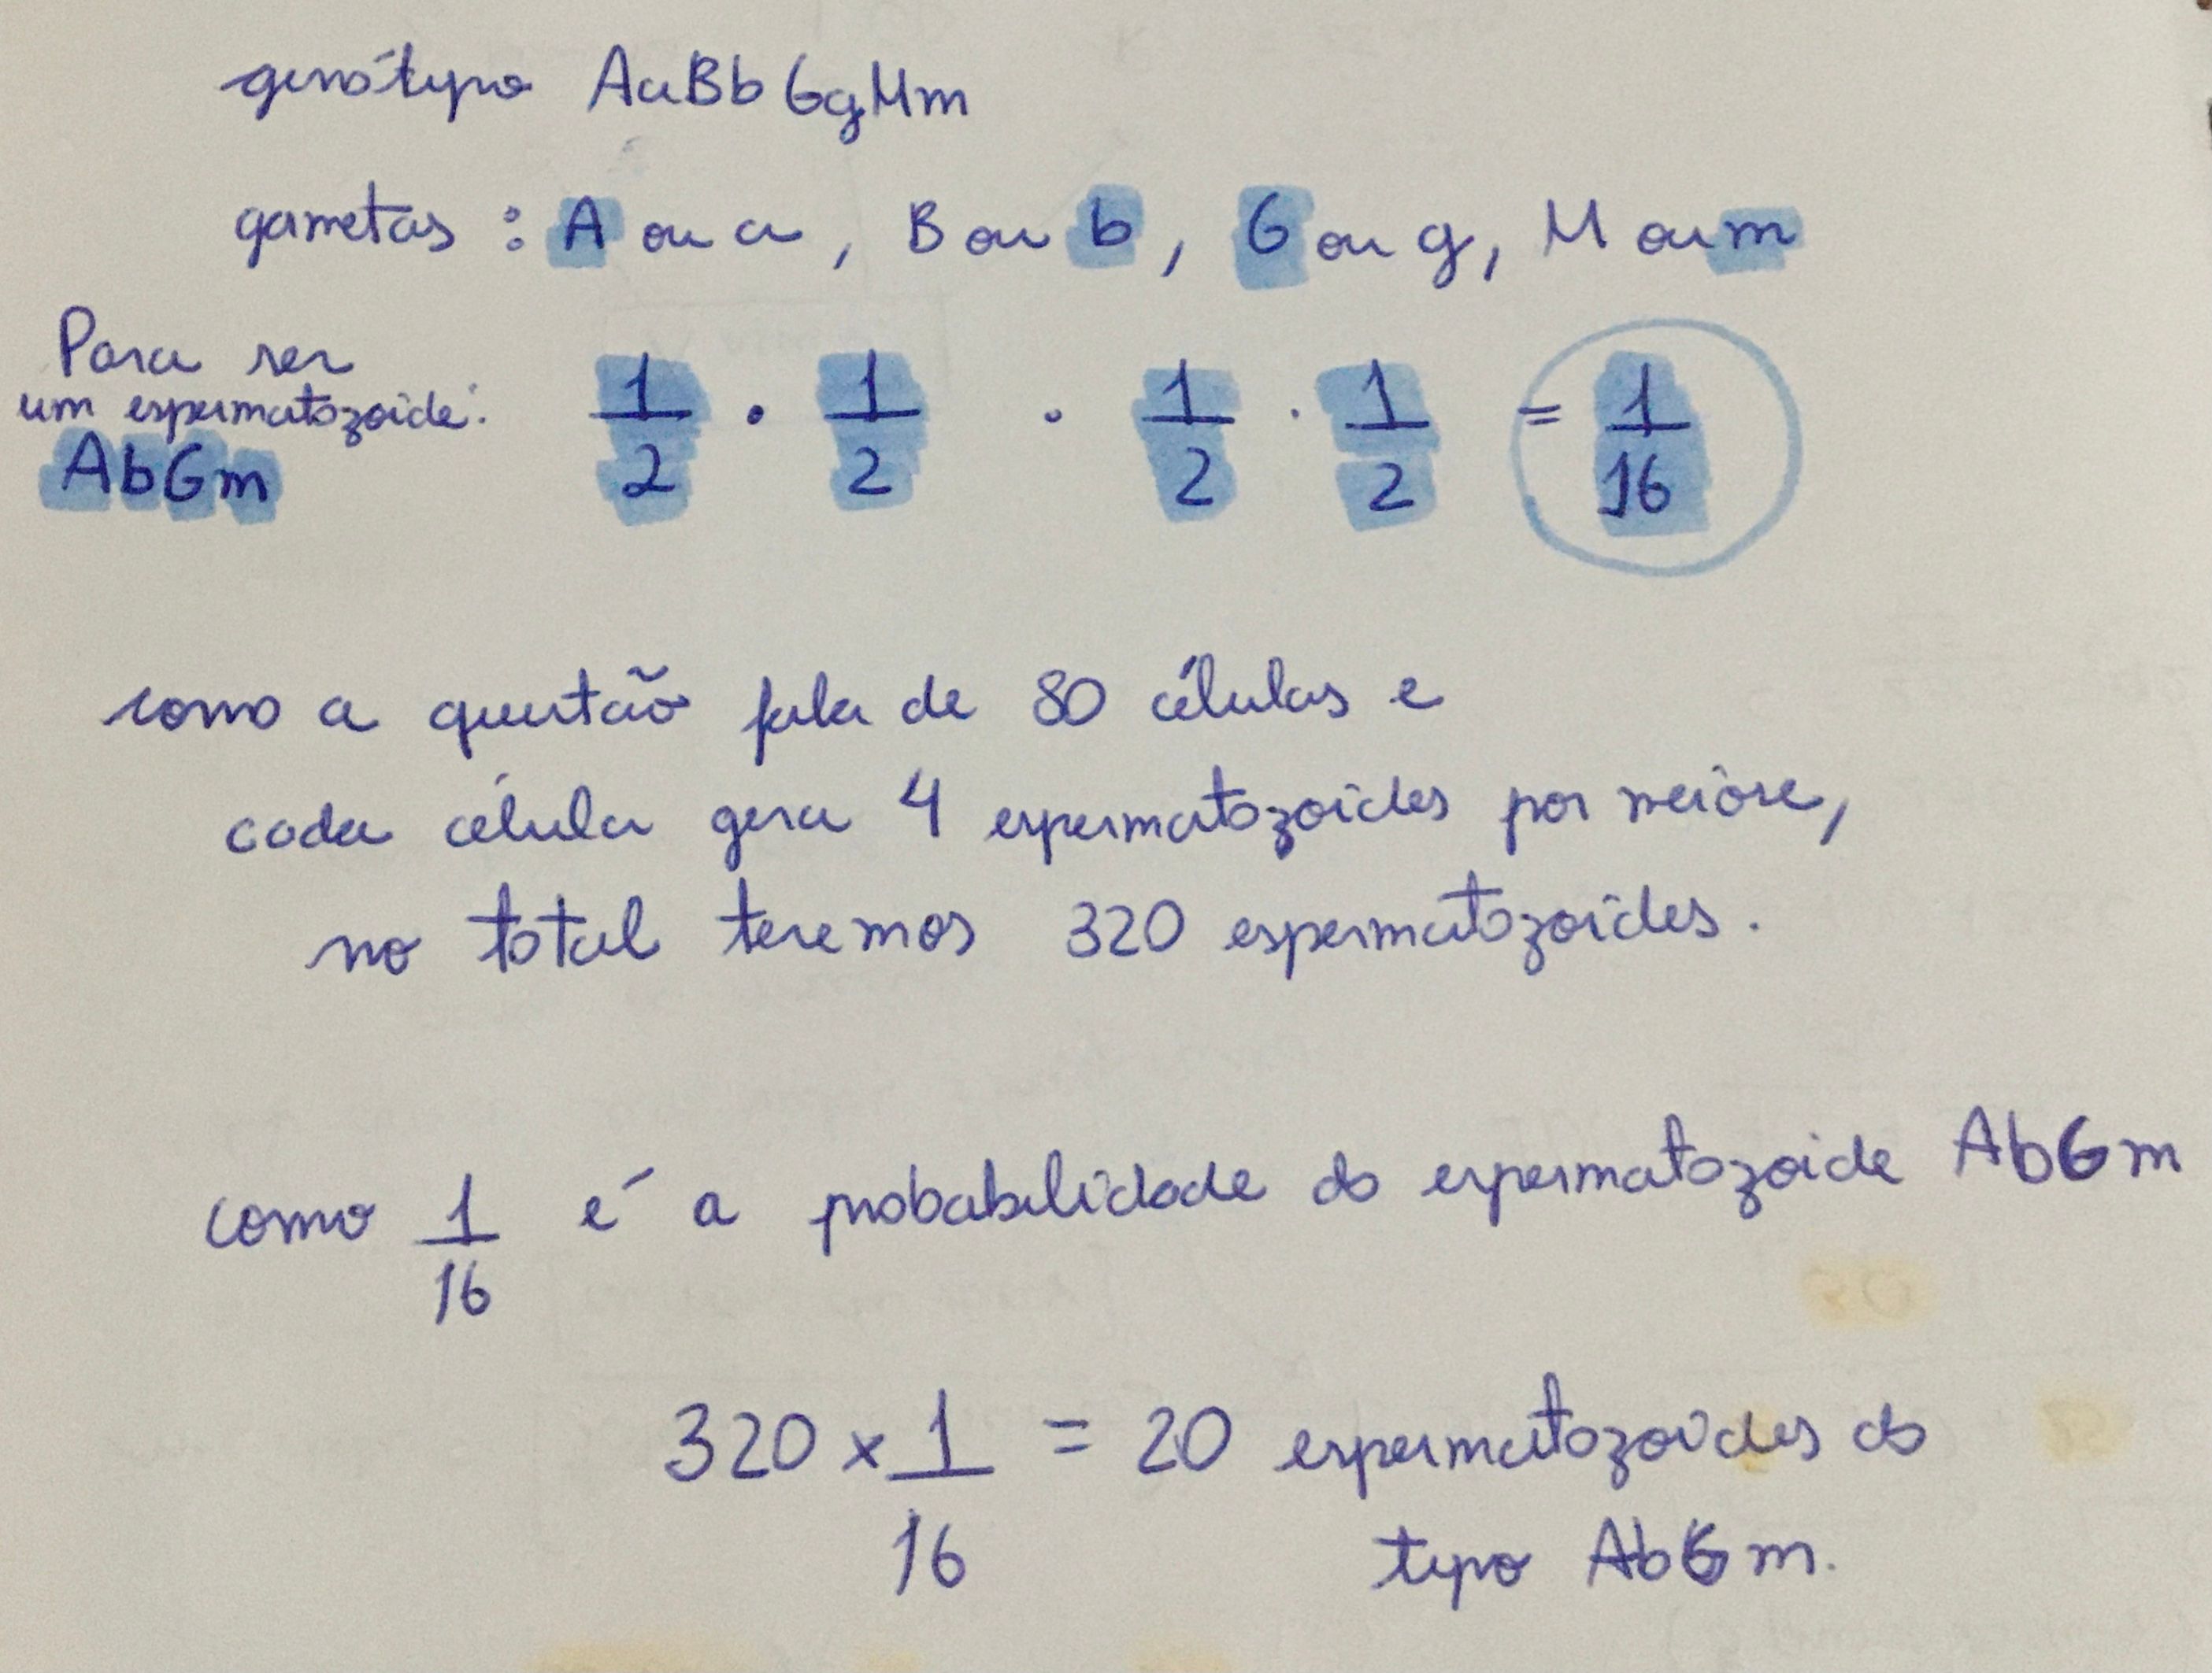 genótypo AaBbGgMm
gametas : A ou a, B ou b, G ou g, M ou m
Para ser
um espermatozoide:
AbGm
1/2 . 1/2 . 1/2 . 1/2 = 1/16
como a questão fala de 80 células e
cada célula gera 4 espermatozoides por meiose,
no total teremos 320 espermatozoides.
como 1/16 é a probabilidade do espermatozoide AbGm
320 x 1/16 = 20 espermatozoides do
typo AbGm.